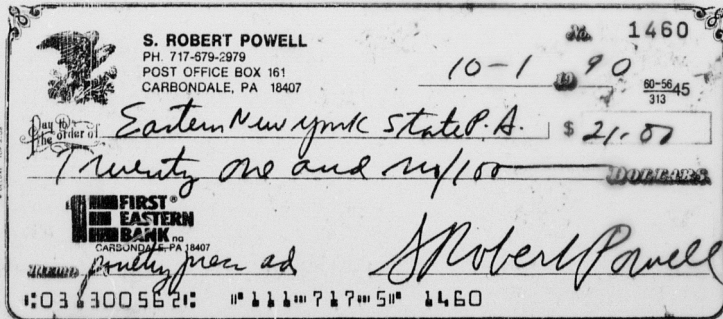 No. 1460
S. ROBERT POWELL
PH. 717-679-2979
POST OFFICE BOX 161
CARBONDALE, PA 18407
10-1 19 90
60-5645
313
Pay to the order of Eastern New York State P.A. $ 21.00
Twenty one and no/100 DOLLARS
FIRST®
EASTERN
BANK na
CARBONDALE, PA 18407
MEMO poultry press ad S Robert Powell
⑆031300562⑆ ⑈111⑉717⑉5⑈ 1460